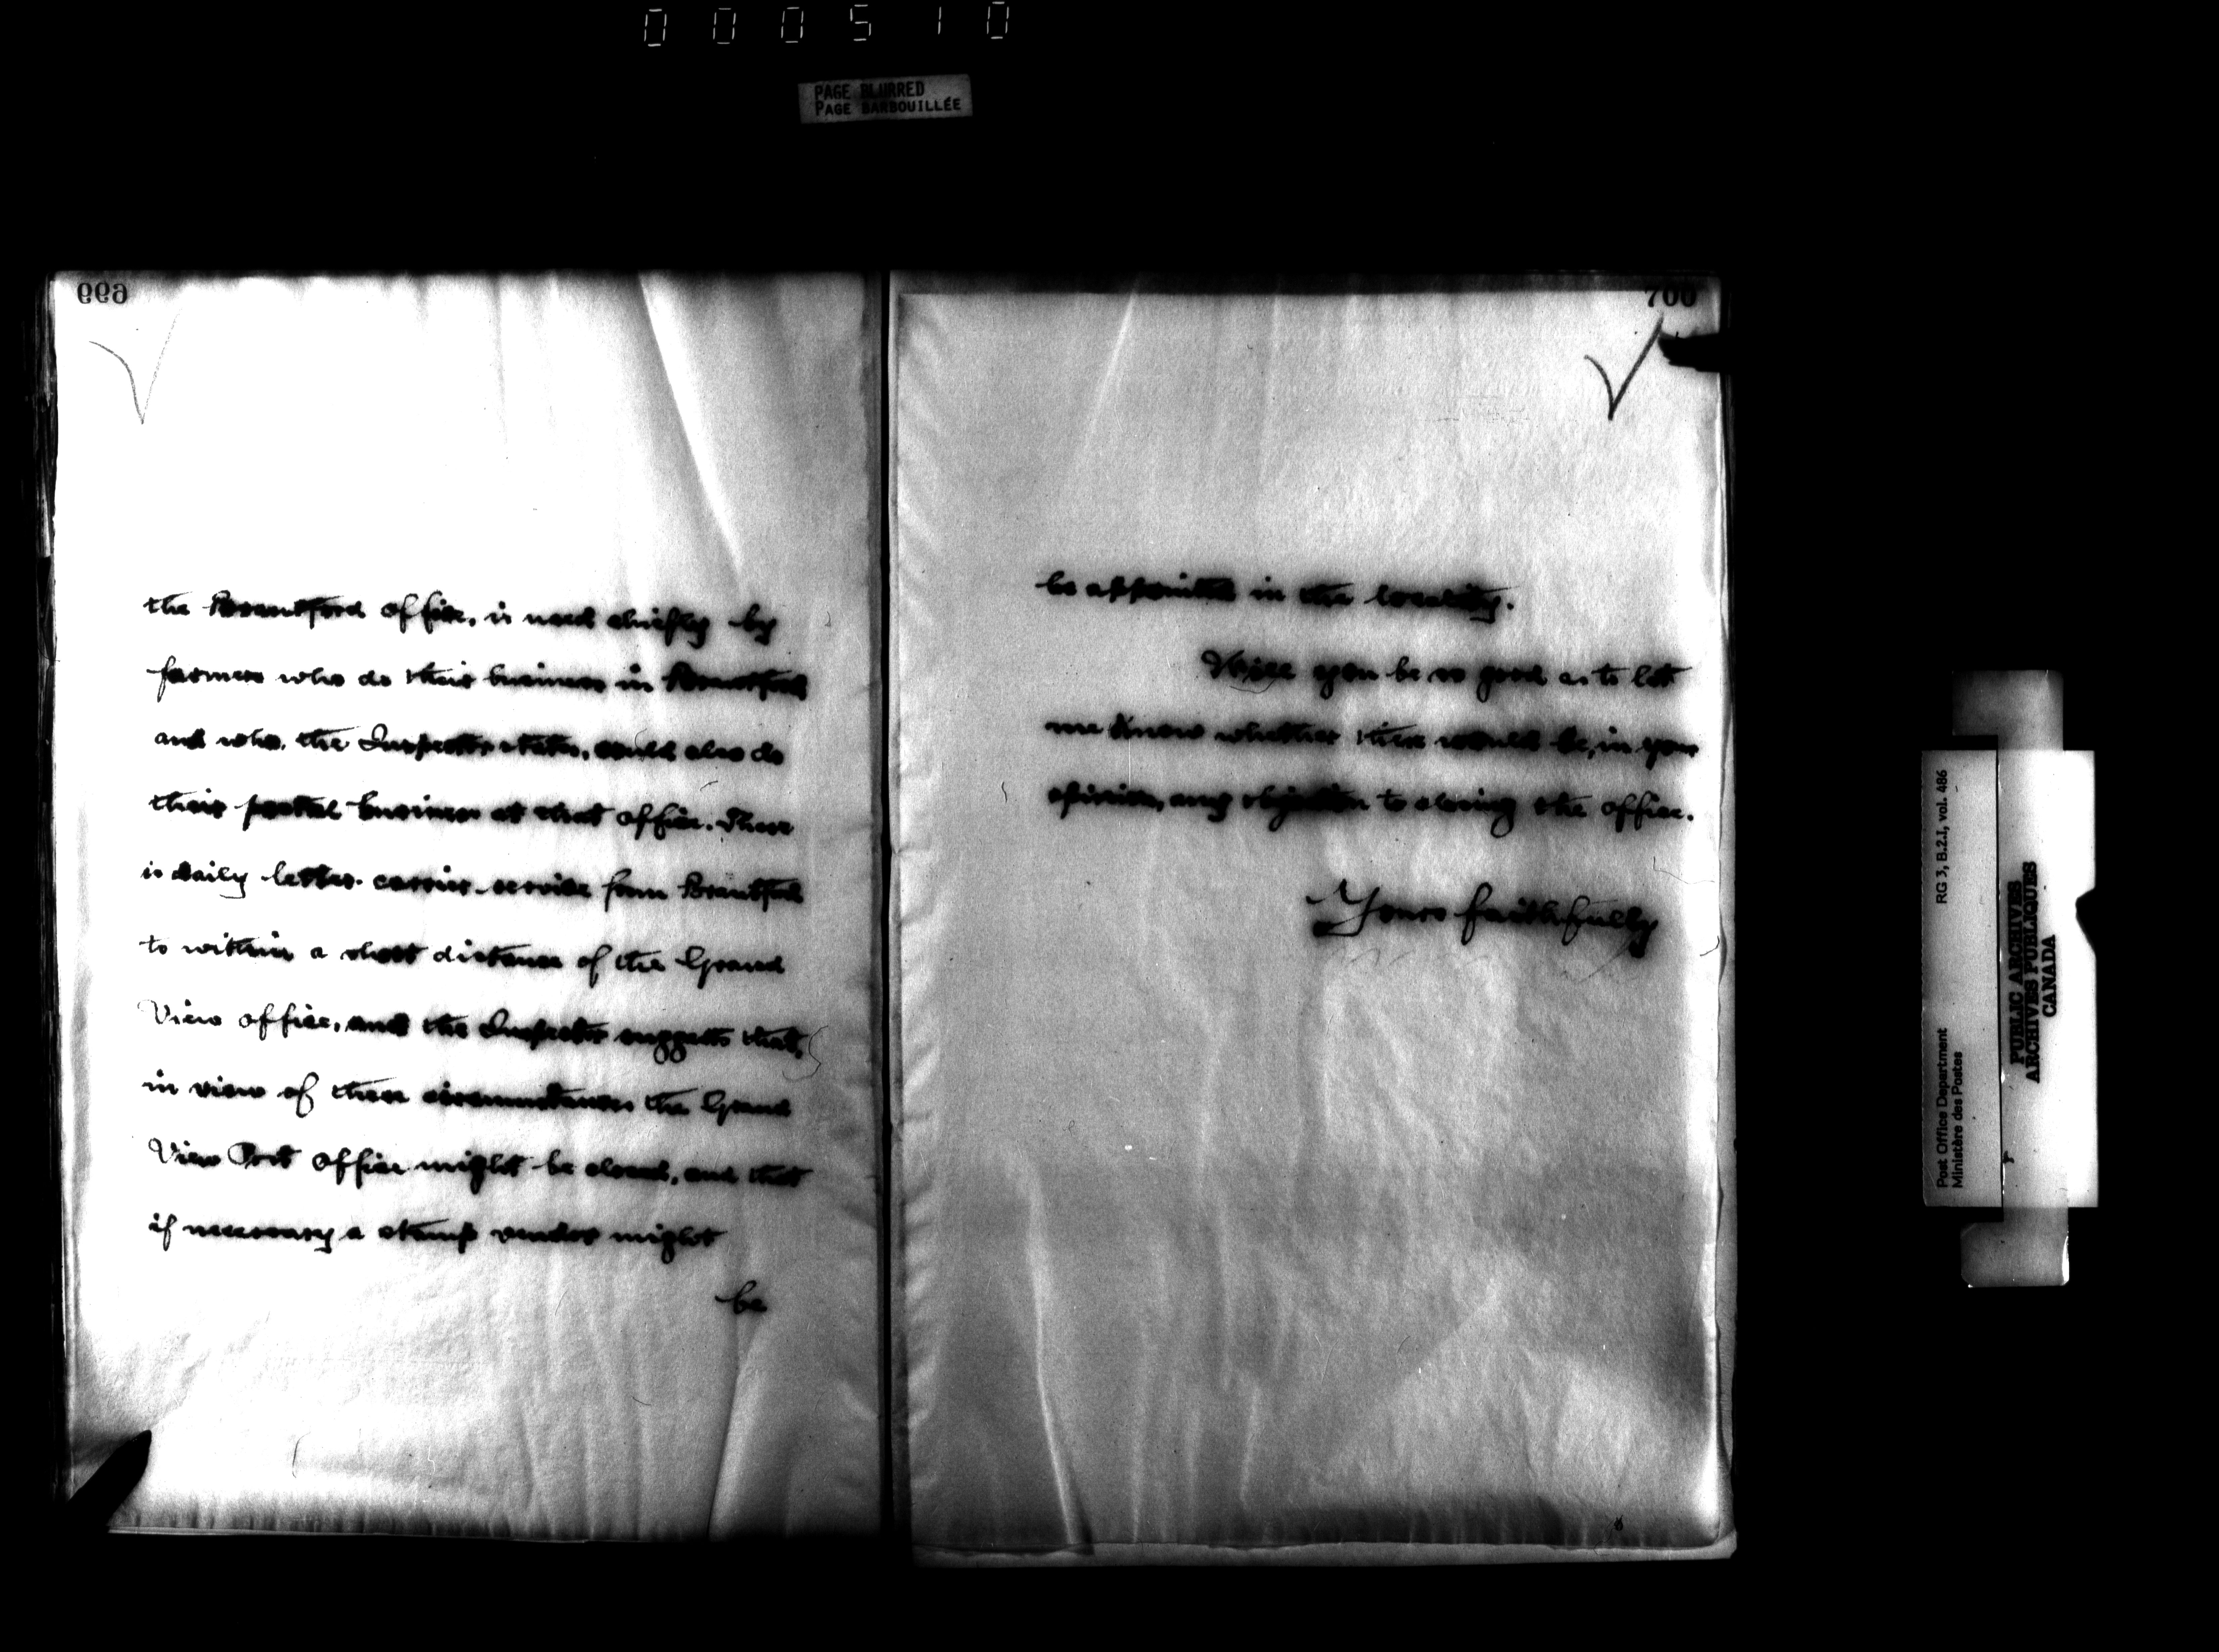 000510
PAGE BLURRED
PAGE BARBOUILLÉE
699
the Brantford office, is used chiefly by
farmers who do their business in Brantford
and who, the Inspector states, could also do
their postal business at that office. There
is daily letter-carrier service from Brantford
to within a short distance of the Grand
View office, and the Inspector suggests that,
in view of these circumstances the Grand
View Post Office might be closed, and that
if necessary a stamp vendor might
be
700
be appointed in the locality.
Will you be so good as to let
me know whether there would be, in your
opinion, any objection to closing the office.
Yours faithfully
RG 3, B.2.I, vol. 486
Post Office Department
Ministère des Postes
PUBLIC ARCHIVES
ARCHIVES PUBLIQUES
CANADA